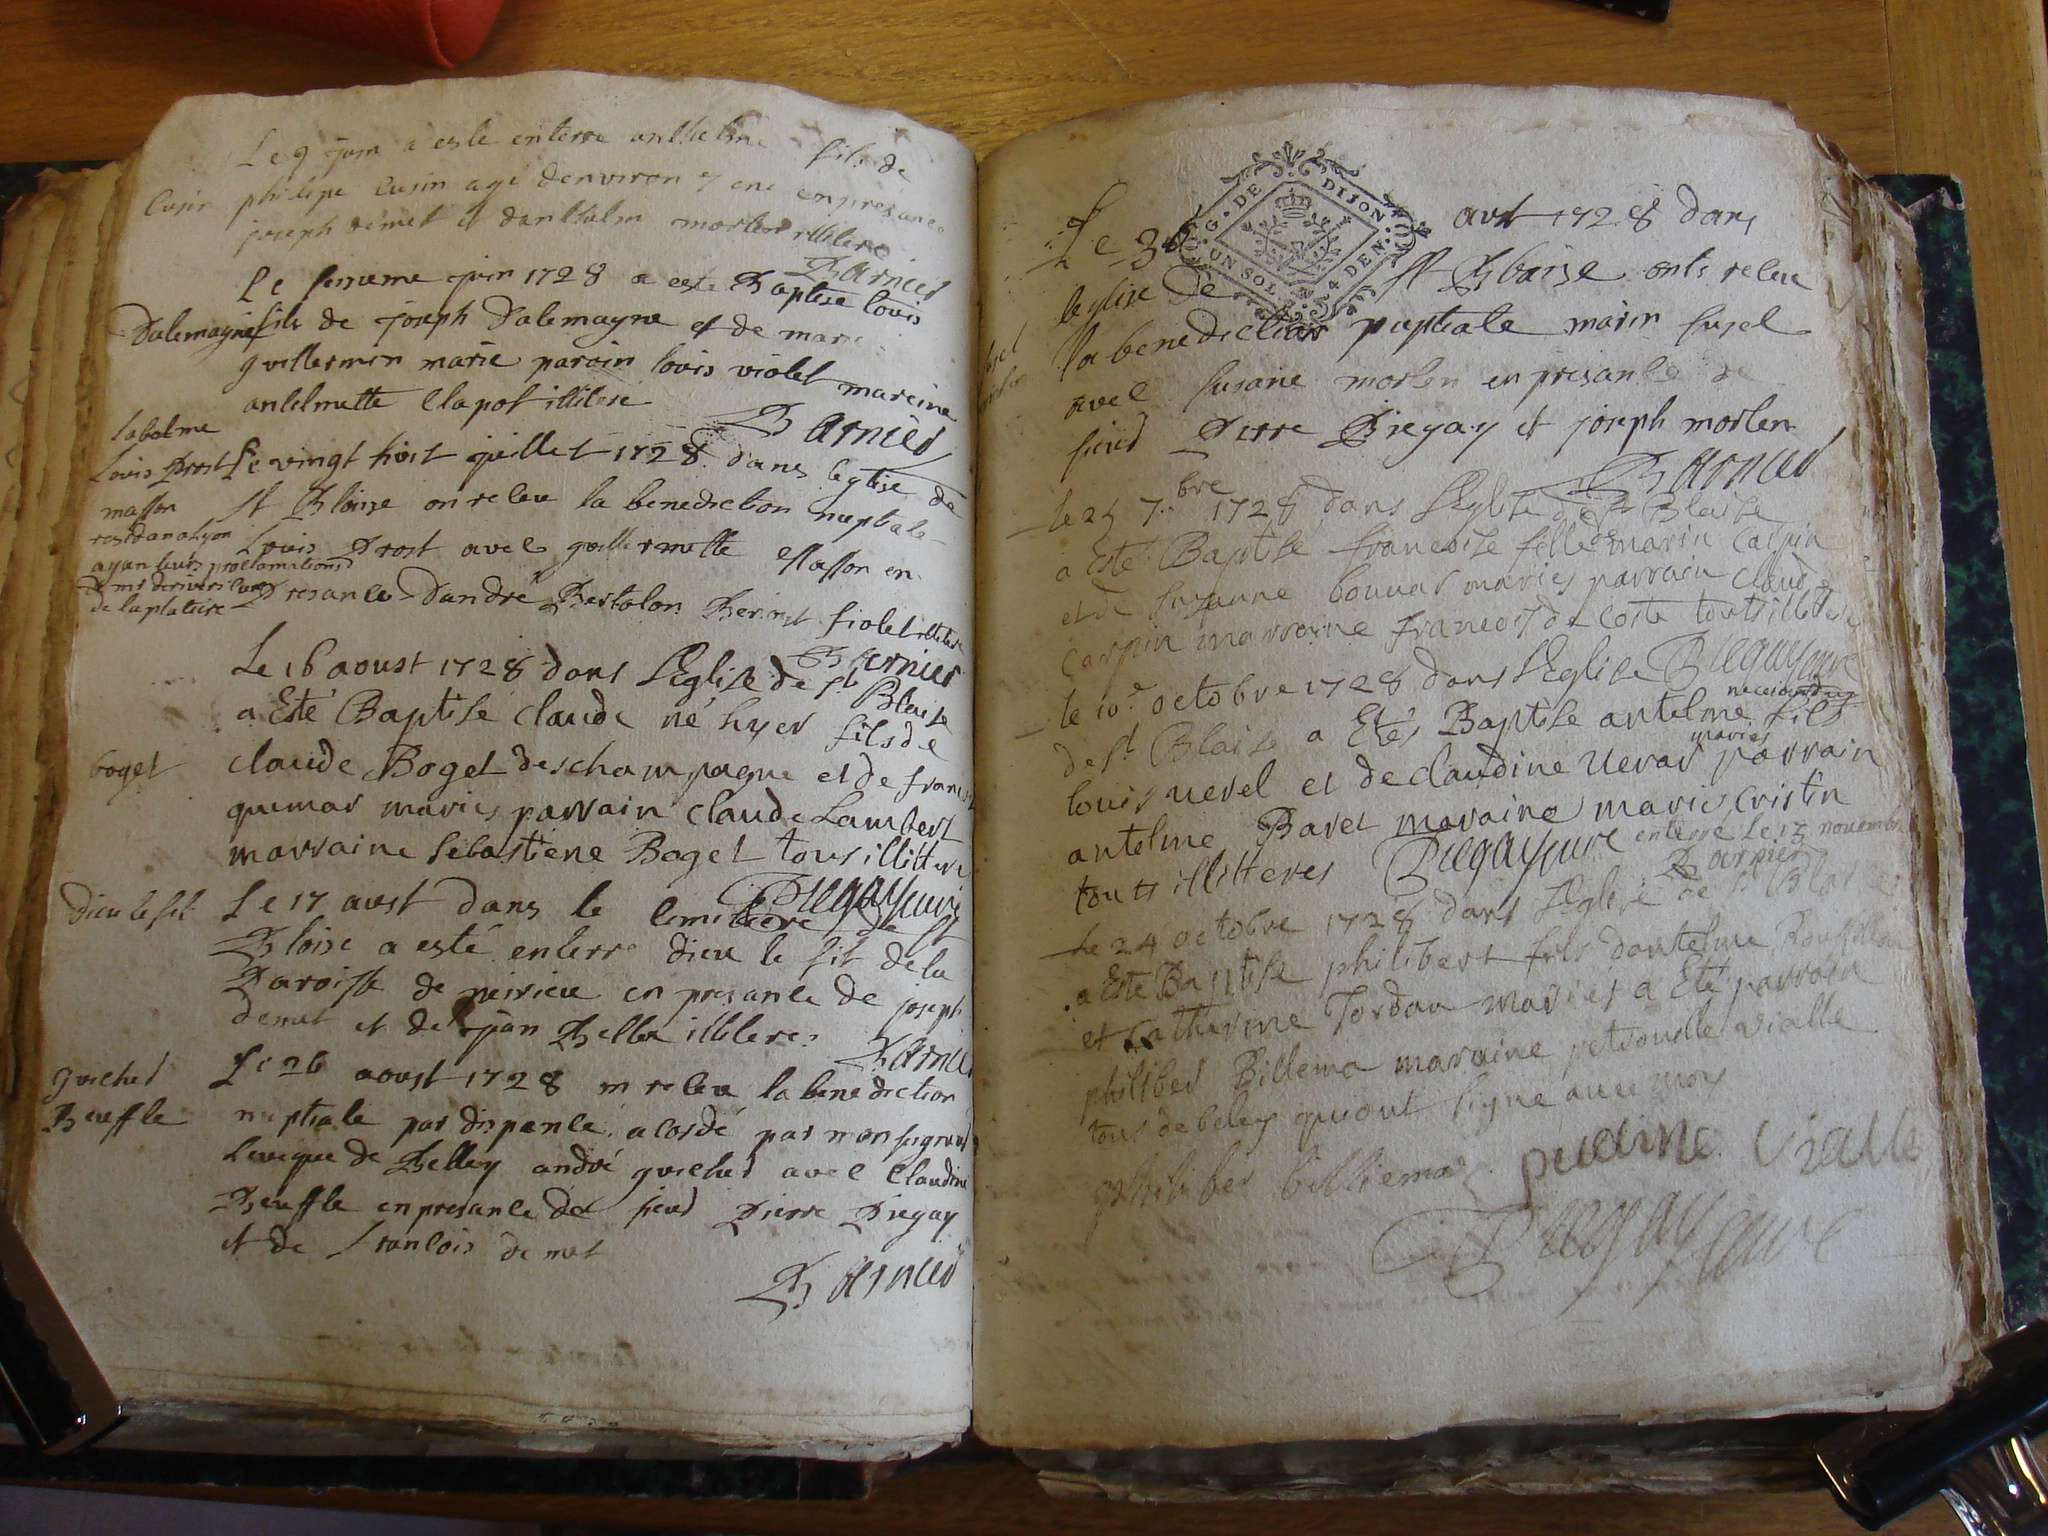 Le 9 juin a esté enterre anthelme fils de
Cusin philipe Cusin agé denviron 7 ens en presance
joseph demet et danthelm morlen illiterez
Barnier
Le juin 1728 a esté Baptise louis
Dalemagne fils de joseph Dalemagne et de marie
guillermin marie parain louis violet mareine
antelmette Clapot illitere
Barnier
labalme
Louis Prost Le vingt huit juillet 1728 dans leglise de
masson St Bloise on releu la benediction nuptiale
residan a lyon Louis Prost avec guillermette Masson en
ayan leurs proclamations
de mr
de la platiere Presance Dandré Bertolon Benoist fiolet illitere
Barnier
Le 16 aoust 1728 dans LEglise de St Blaise
a Eté Baptise claude né hyer fils de
boget claude Boget deschampagne et de francoise
quemar maries parrain claude Lambert
marraine sebastiene Boget tous illitteres
Pregay cure
Dieu le fit Le 17 aust dans le cemitiere de St
Bloise a esté enterre dieu le fit de la
Paroisse de peirieu en presance de joseph
demet et de jan Bella illiteres
Barnier
guichet Le 26 aoust 1728 on releu la benediction
Beuffle nuptiale par dispence acordé par monseigneur
leveque de Belley andré guichet avec Claudine
Beuffle en presance de sieur Pierre Pregay
et de francois demet
Barnier
G. DE DIJON
UN SOL 4 DEN.
Le 30 aut 1728 dans
leglise de St Bloise onts releu
la benediction nuptiale marin susel
avec susane morlen en presance de
sieur Pierre Pregay et joseph morlen
Barnier
le 25 7.bre 1728 dans LEglise de St Blaise
a Eté Baptise francoise fille de marin Carpin
et de suzanne bonnar maries parrain claude
Carpin marraine francoise de Coste touts illitteres
Pregay cure
le 10e octobre 1728 dans LEglise
de St Blaise a Etés Baptise antelme fils
maries
louis nerel et de claudine Verar parrain
antelme Baret maraine marie Cristin
touts illitteres Pregay cure enterré le 15 novembre
Barnier
Le 24 octobre 1728 dans LEglise de St Blaise
a Eté Baptise philibert fils dantelme Roussillon
et Catherine Jordan maries a Eté parrain
philiber Billema maraine petronille vialle
tous de beley qui ont signé avec moy
philiber billiema Vialle
Pregay cure